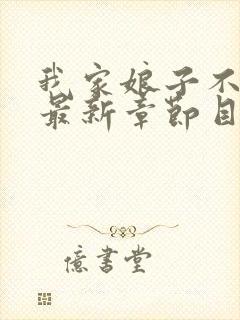 我家娘子不
最新章節目
億書堂